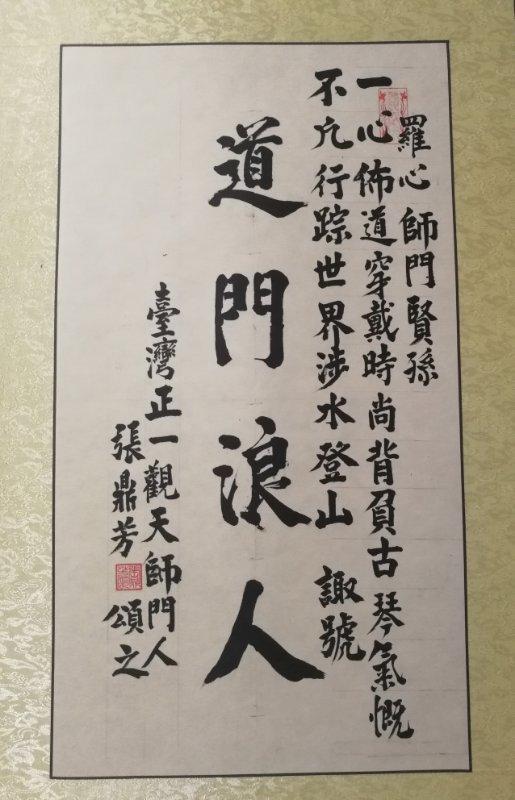 羅心 師門賢孫
一心佈道穿戴時尚背負古琴氣慨
不凡行踪世界涉水登山 諏號
道門浪人
臺灣正一觀天師門人
張鼎芳 頌之